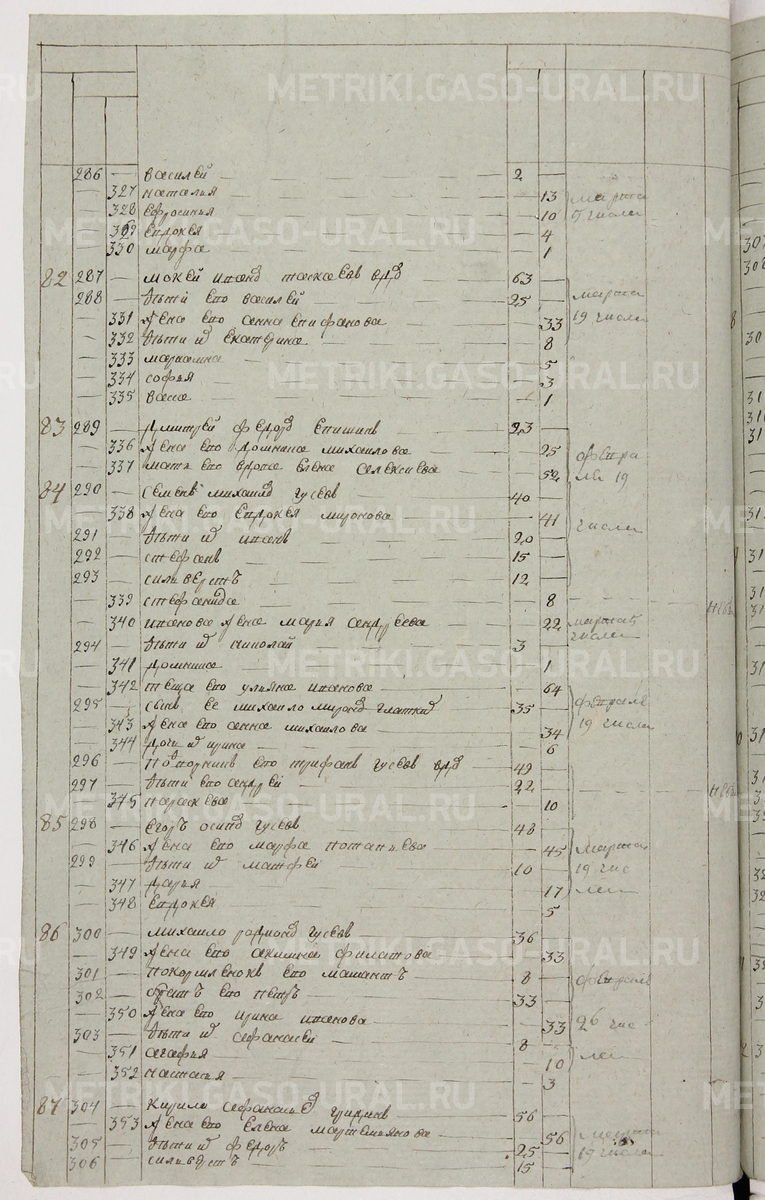 METRIKI.GASO-URAL.RU
286 — василей — 2
327 наталия — 13 марта
328 ефросиния — 10 5 числа
329 евдокея — 4
330 марфа — 1
82 287 — мокей иванов вдв — 63
288 — дети его василей — 25 марта
331 жена его анна епифанова — 33 19 числа
332 дети их екатерина — 8
333 мариамна — 5
334 софия — 3
335 васса — 1
83 289 — дмитрей федоров епишинъ — 23
336 жена его домника михайлова — 25 февра
337 мать его вдова елена алексиева — 52 ля 19
84 290 — семенъ михайлов гусевъ — 40
338 жена его евдокея миронова — 41 числа
291 — дети их иванъ — 20
292 — стефанъ — 15
293 — силиверстъ — 12
339 стефанида — 8
340 иванова жена мария андреева — 22 марта 5 числа
294 — дети их николай — 3
341 домника — 1
342 теща его улияна иванова — 64
295 — сынъ ее михайло миронов — 35 февраля
343 жена его анна михайлова — 34 19 числа
344 дочь их ирина — 6
296 — его трифанъ гусевъ вдв — 49
297 — дети его андрей — 22
345 параскева — 10
85 298 — егоръ осипов гусевъ — 48
346 жена его марфа потапиева — 45 марта
299 — дети их матфей — 10 19 чис
347 дария — 17 ла
348 евдокея — 5
86 300 — михайло родионов гусевъ — 36
349 жена его акилина филатова — 33
301 — покормленокъ его — 8 февраля
302 — братъ его петръ — 33
350 жена его ирина иванова — 33 26 чис
303 — дети их афанасей — 8
351 агафия — 10 ла
352 настасия — 3
87 304 — кирило афанасиев — 56
353 жена его елена мартемиянова — 56 марта
305 — дети их федоръ — 25 19 числа
306 — силиверстъ — 15